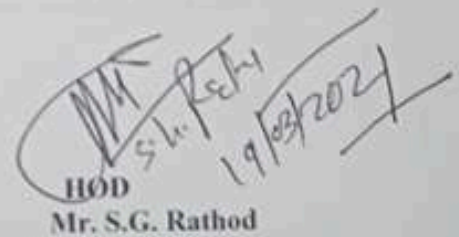 19/03/2021
HOD
Mr. S.G. Rathod